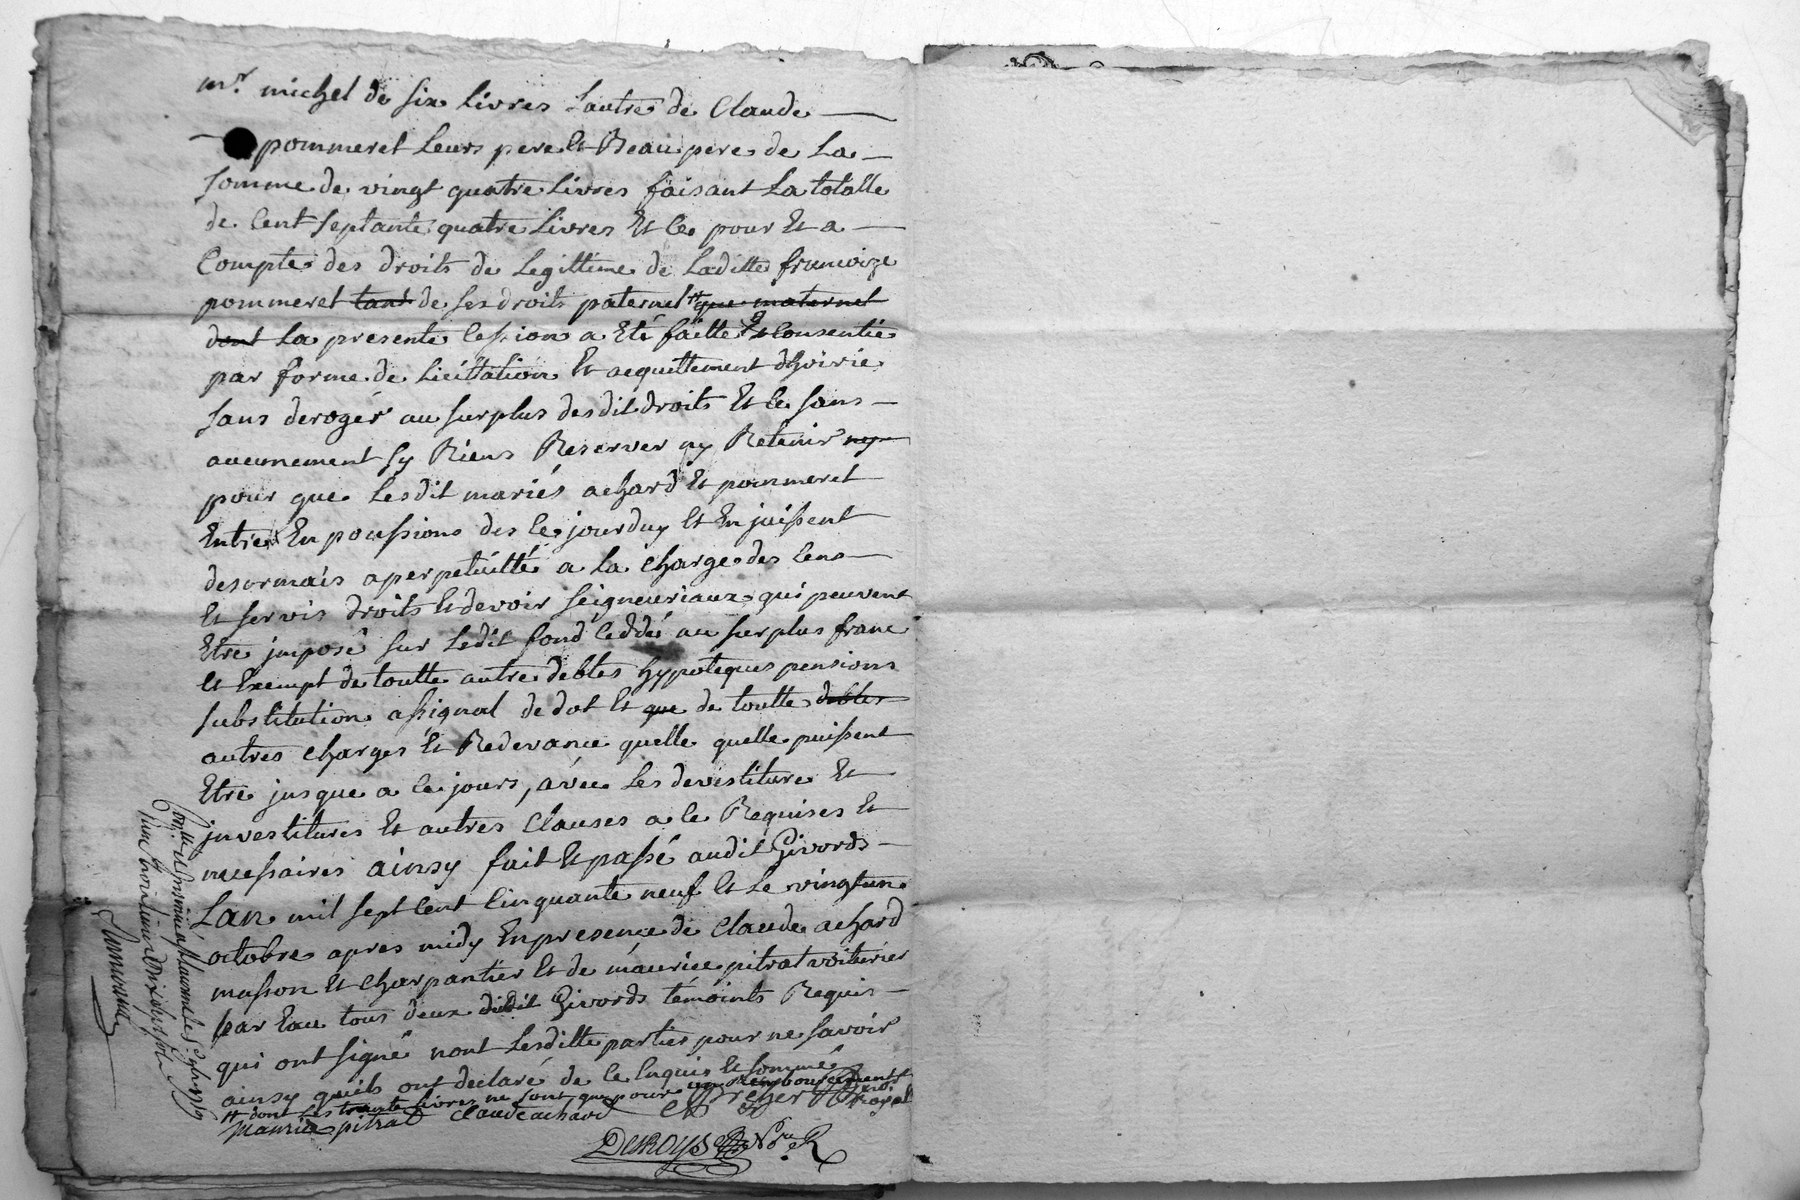 mr. michel de six livres lautre de Claude
pommeret leurs pere et Beau pere de la
somme de vingt quatre livres faisant la totalle
de cent septante quatre livres Et ce pour Et a
Compte des droits de legittime de laditte francoize
pommeret tant de ses droits paternel que maternel
dont la presente cession a Eté faitte Et Consentie
par forme de licittation Et acquittement dhoirie
sans deroger au surplus desdit droits Et ce sans
aucunement sy Riens Reserver ny Retenir ny
pour que lesdit mariés achard Et pommeret
Entre En poussions des ce jourduy Et En juissent
desormais a perpetuitté a la charge des cens
Et servis droits Et devoir seigneuriaux qui peuvent
Etre imposé sur ledit fond ceddé au surplus franc
Et Exempt de toutte autre debtes hypoteques pensions
substitution assignal de dot Et que de toutte debtes
autres charges Et Redevance quelle quelle puissent
Etre jusque a ce jours, avec les devestiture Et
investitures Et autres Clauses a ce Requises Et
necessaires ainsy fait Et passé audit Givords
Lan mil sept cent cinquante neuf Et le vingtun
octobre apres midy En presence de Claude achard
masson Et charpantier Et de maurice pitrat voiturier
par Eau tous deux dudit Givords témoints Requis
qui ont signé nont lesditte parties pour ne savoir
ainsy quils ont declaré de ce Enquis Et sommé
dont les trante livres ne sont que pour un Remboursement
Maurice pitrat Claude achard
Royal
DeROYS Nre R